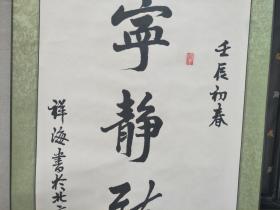 壬辰初春
寧静
祥海書於北